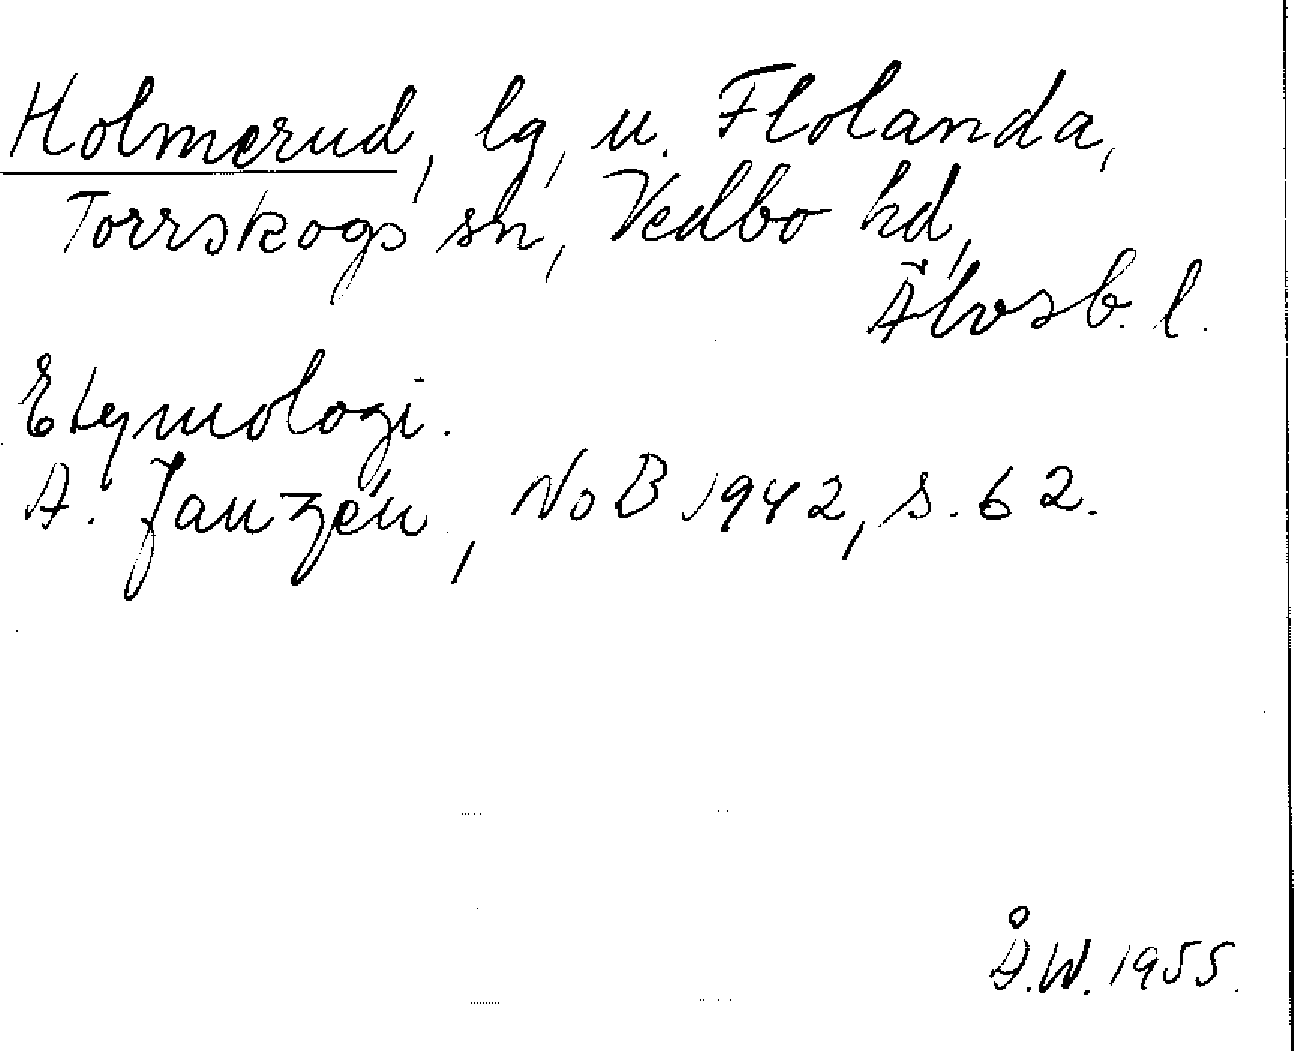 Holmerud, lg, u. Flolanda,
Torrskogs sn, Vedbo hd,
Älvsb. l.
Etymologi.
A. Janzén, NoB 1942, s. 62.
Å.W. 1955.